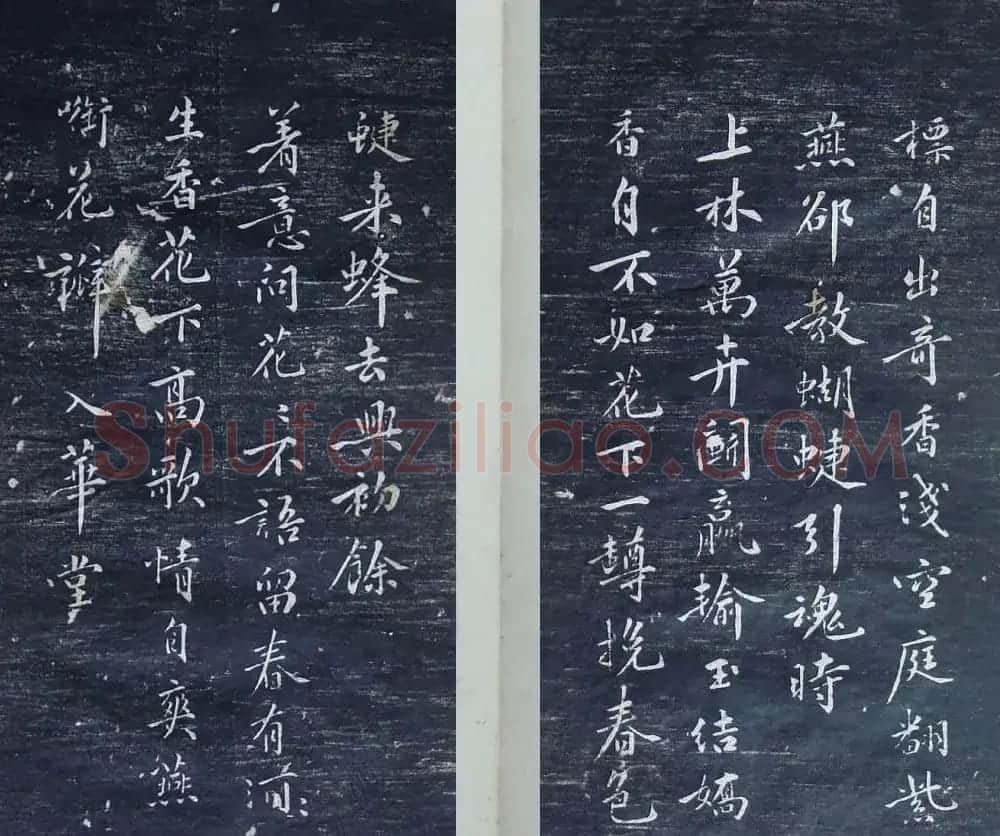 標自出奇香淺空庭翻紫
燕郤教蝴蜨引魂時
上林萬卉鬭贏輸玉結嬌
香自不如花下一罇挽春色
蜨来蜂去興初餘
着意问花〻不語留春有酒
生香花下高歌情自爽燕
㘅花瓣入華堂
Shufaziliao.COM